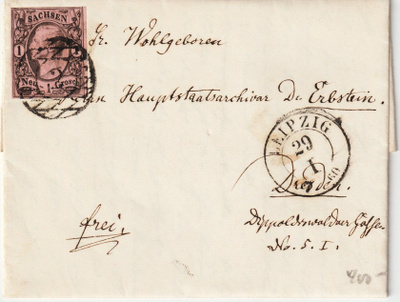 SACHSEN
1 1
Neu-Grosch.
Sr. Wohlgeboren
Hauptstaatsarchivar Dr. Erbstein.
LEIPZIG
29
I
Dresden.
frei.
Dippoldiswaldaer Gasse
No. 5. I.
400-